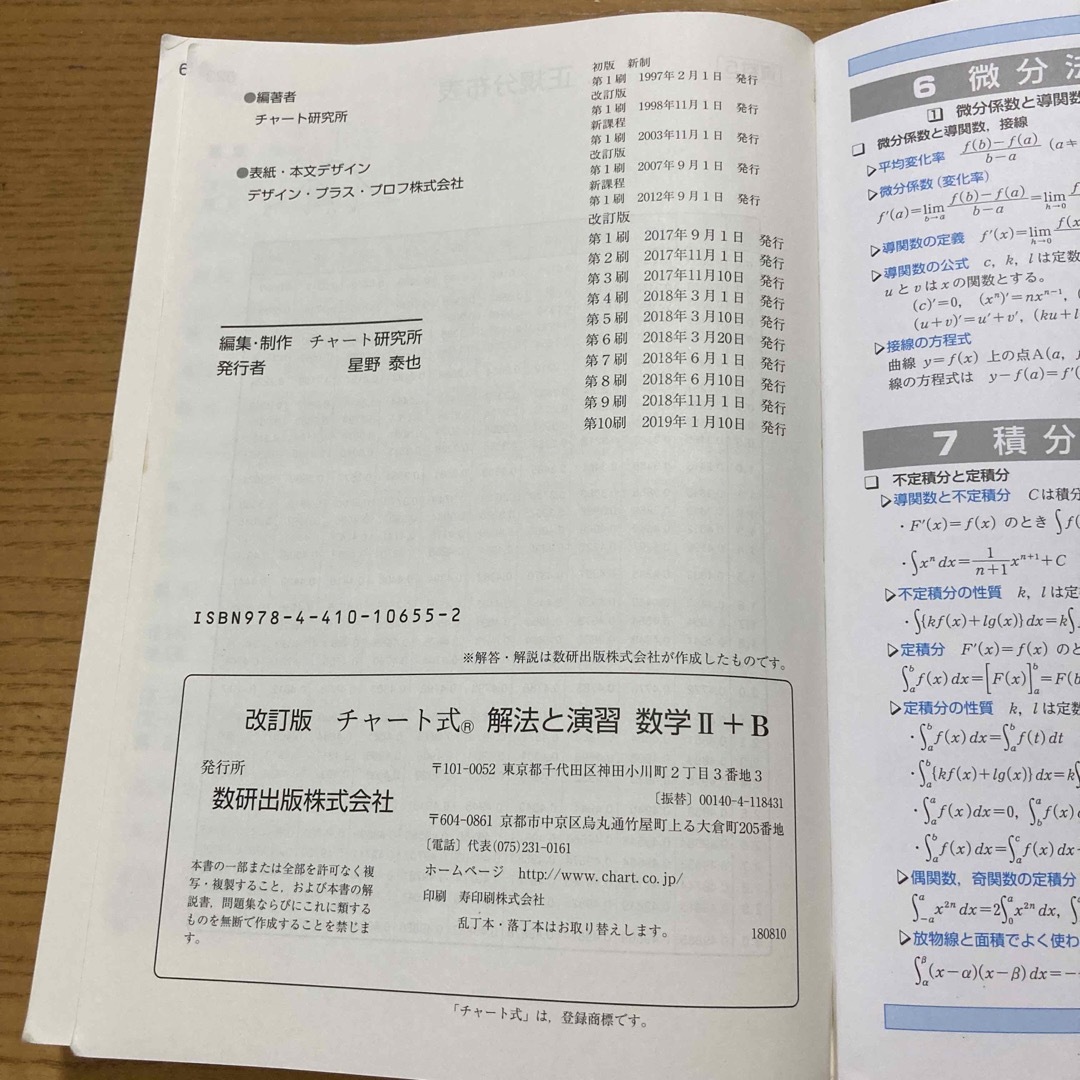 6
●編著者
チャート研究所
●表紙・本文デザイン
デザイン・プラス・プロフ株式会社
初版 新制
第1刷 1997年2月1日 発行
改訂版
第1刷 1998年11月1日 発行
新課程
第1刷 2003年11月1日 発行
改訂版
第1刷 2007年9月1日 発行
新課程
第1刷 2012年9月1日 発行
改訂版
第1刷 2017年9月1日 発行
第2刷 2017年11月1日 発行
第3刷 2017年11月10日 発行
第4刷 2018年3月1日 発行
第5刷 2018年3月10日 発行
第6刷 2018年3月20日 発行
第7刷 2018年6月1日 発行
第8刷 2018年6月10日 発行
第9刷 2018年11月1日 発行
第10刷 2019年1月10日 発行
編集・制作 チャート研究所
発行者 星野 泰也
ISBN978-4-410-10655-2
※解答・解説は数研出版株式会社が作成したものです。
改訂版 チャート式® 解法と演習 数学Ⅱ+B
発行所
数研出版株式会社
本書の一部または全部を許可なく複
写・複製すること，および本書の解
説書，問題集ならびにこれに類する
ものを無断で作成することを禁じま
す。
〒101-0052 東京都千代田区神田小川町2丁目3番地3
〔振替〕00140-4-118431
〒604-0861 京都市中京区烏丸通竹屋町上る大倉町205番地
〔電話〕代表(075)231-0161
ホームページ http://www.chart.co.jp/
印刷 寿印刷株式会社
乱丁本・落丁本はお取り替えします。
180810
「チャート式」は，登録商標です。
6 微分法
1 微分係数と導関数
微分係数と導関数，接線
▷平均変化率 f(b)−f(a)/b−a (a≠
▷微分係数(変化率)
f′(a)=lim b→a f(b)−f(a)/b−a =lim h→0
▷導関数の定義 f′(x)=lim h→0 f(x
▷導関数の公式 c, k, l は定数
u と v は x の関数とする。
(c)′=0, (xⁿ)′=nxⁿ⁻¹, (
(u+v)′=u′+v′, (ku+l
▷接線の方程式
曲線 y=f(x) 上の点A(a,
線の方程式は y−f(a)=f′(
7 積分
不定積分と定積分
▷導関数と不定積分 Cは積分
・F′(x)=f(x) のとき ∫f(
・∫xⁿdx=1/n+1 xⁿ⁺¹+C
▷不定積分の性質 k, l は定
・∫{kf(x)+lg(x)}dx=k∫
▷定積分 F′(x)=f(x) のと
∫ₐᵇf(x)dx=[F(x)]ₐᵇ=F(b
▷定積分の性質 k, l は定数
・∫ₐᵇf(x)dx=∫ₐᵇf(t)dt
・∫ₐᵇ{kf(x)+lg(x)}dx=k∫
・∫ₐᵃf(x)dx=0, ∫ᵇᵃf(x)
・∫ₐᵇf(x)dx=∫ₐᶜf(x)dx
▷偶関数，奇関数の定積分
∫₋ₐᵃx²ⁿdx=2∫₀ᵃx²ⁿdx,
▷放物線と面積でよく使わ
∫αᵝ(x−α)(x−β)dx=−